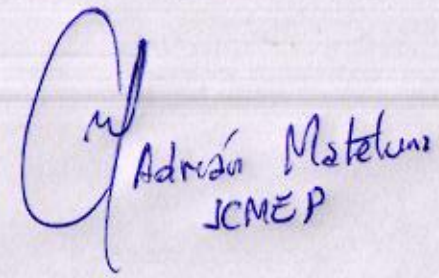 Adrián Mateluna
JCMEP